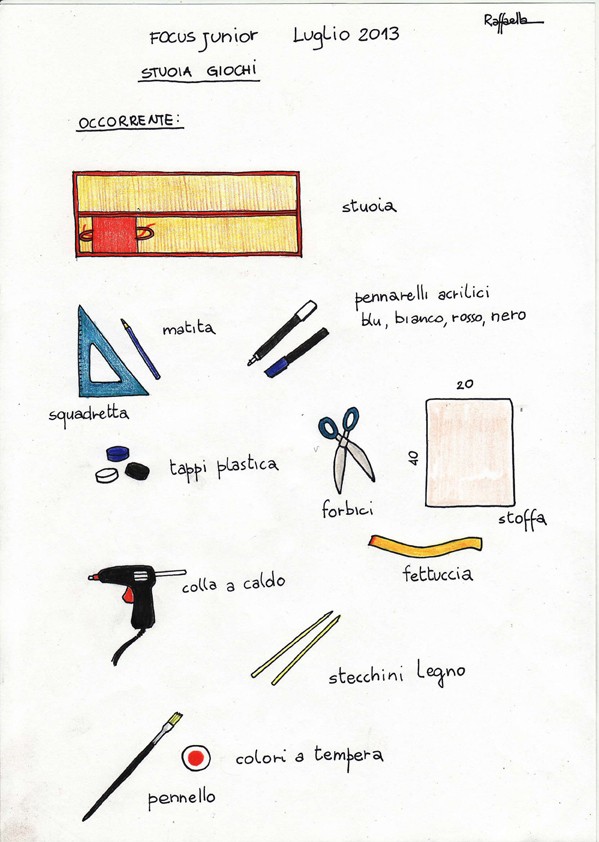 Raffaella
FOCUS JUNIOR Luglio 2013
STUOIA GIOCHI
OCCORRENTE:
stuoia
pennarelli acrilici
blu, bianco, rosso, nero
matita
squadretta
20
40
tappi plastica
forbici
stoffa
fettuccia
colla a caldo
stecchini legno
colori a tempera
pennello